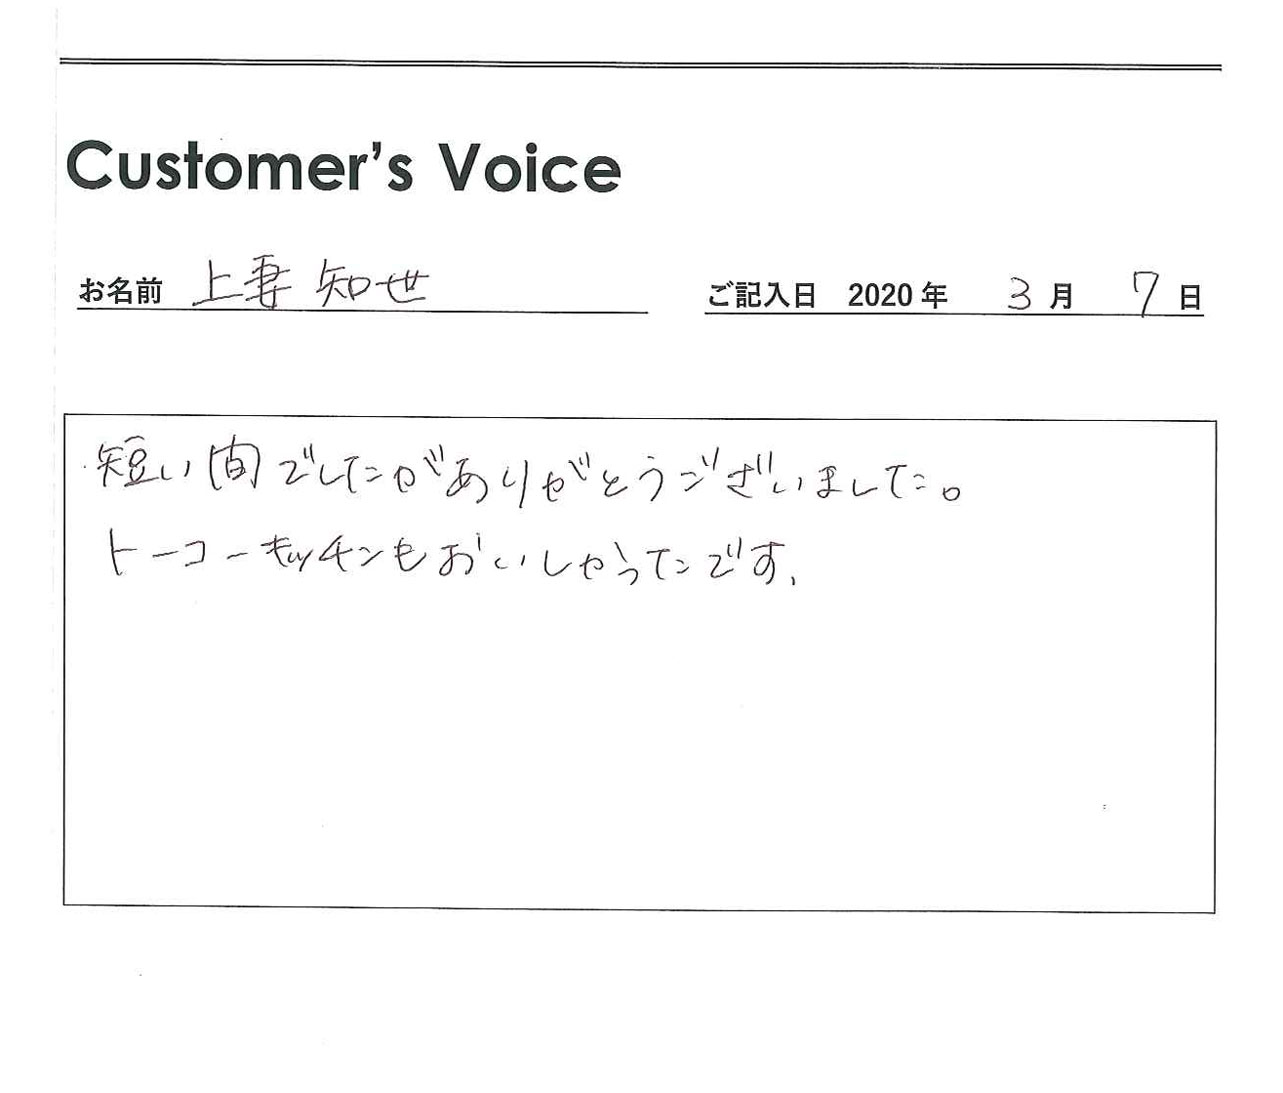 Customer's Voice
お名前 上妻 知世
ご記入日 2020年 3月 7日
短い間でしたがありがとうございました。
トーコーキッチンもおいしかったです、